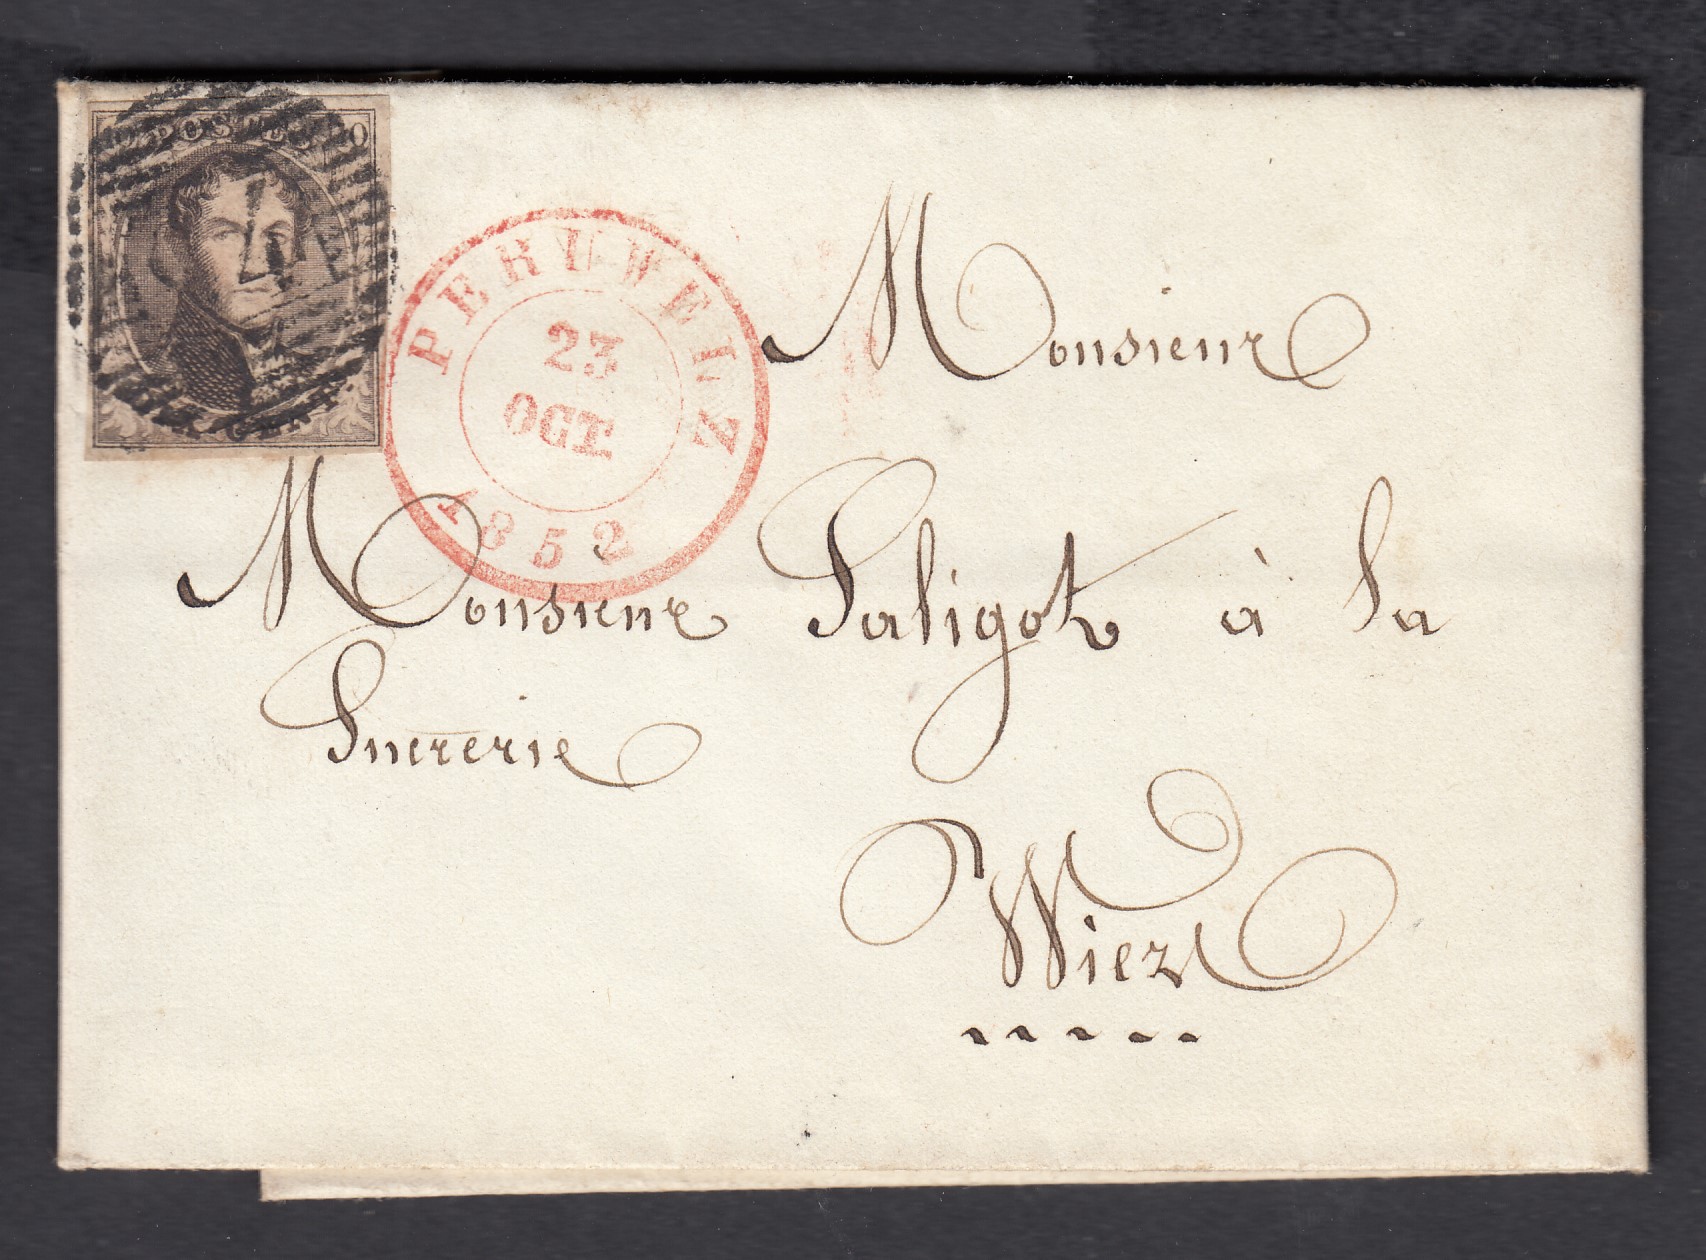 POSTES 10
PERUWELZ
23
OCT.
1852
Monsieur
Monsieur Saligot à la
Sucrerie
Wiez